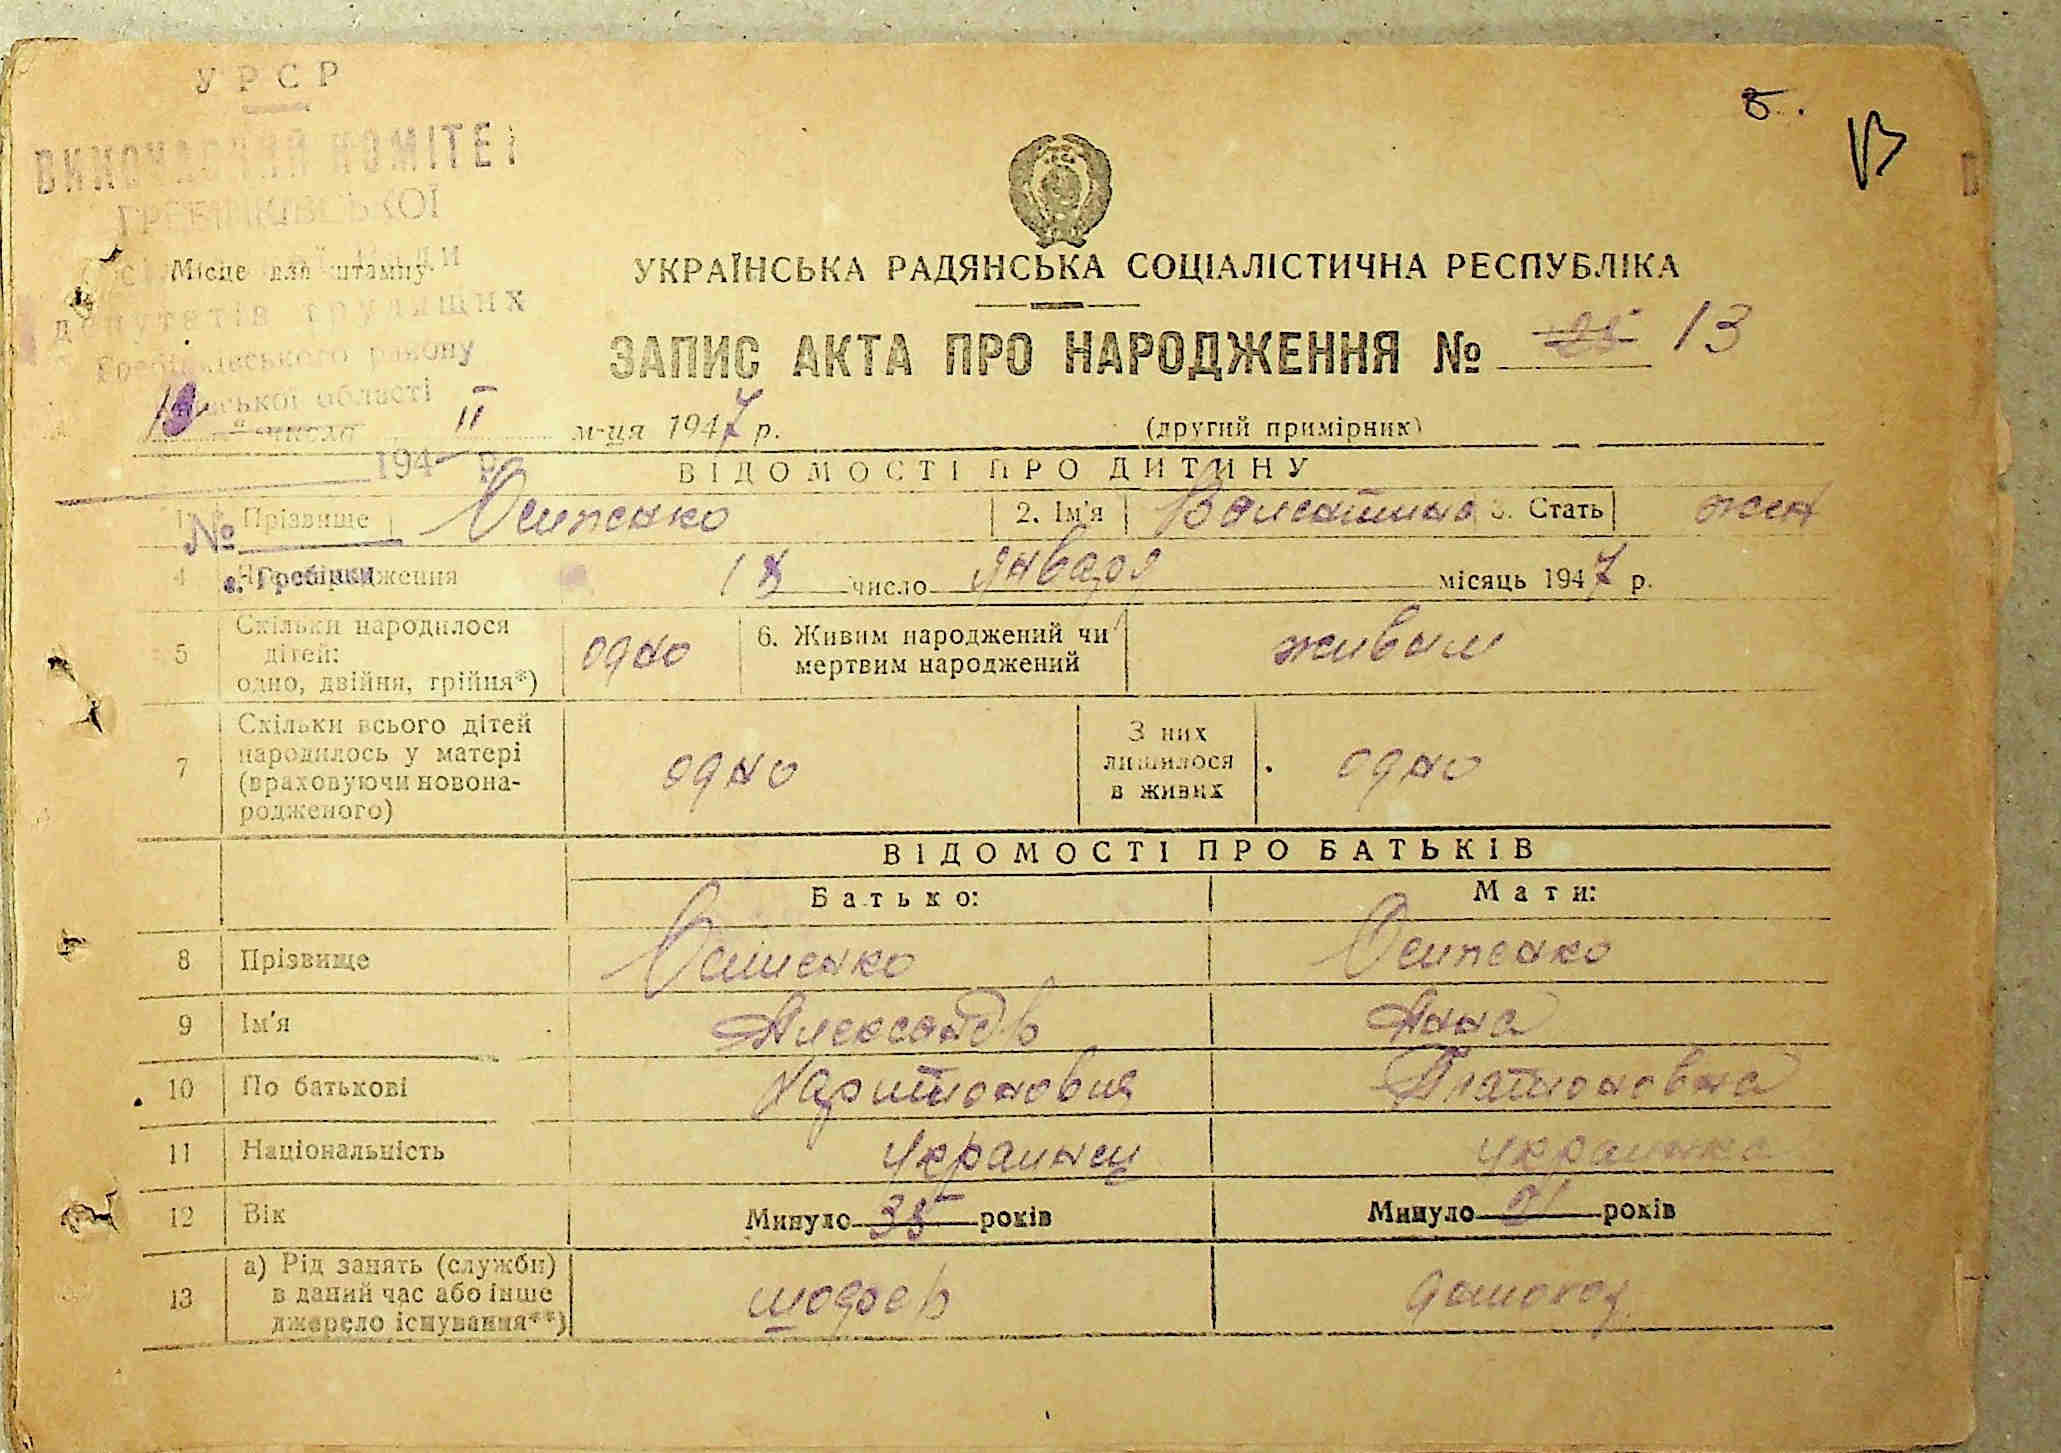 У Р С Р
ВИКОНАВЧИЙ КОМІТЕТ
ГРЕБІНКІВСЬКОЇ
Місце для штампу
депутатів трудящих
Гребінківського району
області
194 р.
№
с. Гребінки
8.
УКРАЇНСЬКА РАДЯНСЬКА СОЦІАЛІСТИЧНА РЕСПУБЛІКА
ЗАПИС АКТА ПРО НАРОДЖЕННЯ № 25 13
" числа II м-ця 1947 р.
(другий примірник)
ВІДОМОСТІ ПРО ДИТИНУ
1 Прізвище Осипенко 2. Ім'я Валентина 3. Стать жен
4 Час народження 18 число января місяць 1947 р.
5 Скільки народилося дітей: одно, двійня, трійня*) одно 6. Живим народжений чи мертвим народжений живым
7 Скільки всього дітей народилось у матері (враховуючи новонародженого) одно З них лишилося в живих одно
ВІДОМОСТІ ПРО БАТЬКІВ
Батько: Мати:
8 Прізвище Осипенко Осипенко
9 Ім'я Александр Анна
10 По батькові Харитонович Платоновна
11 Національність украинец украинка
12 Вік Минуло 35 років Минуло років
13 а) Рід занять (служби) в даний час або інше джерело існування**) шофер домохоз